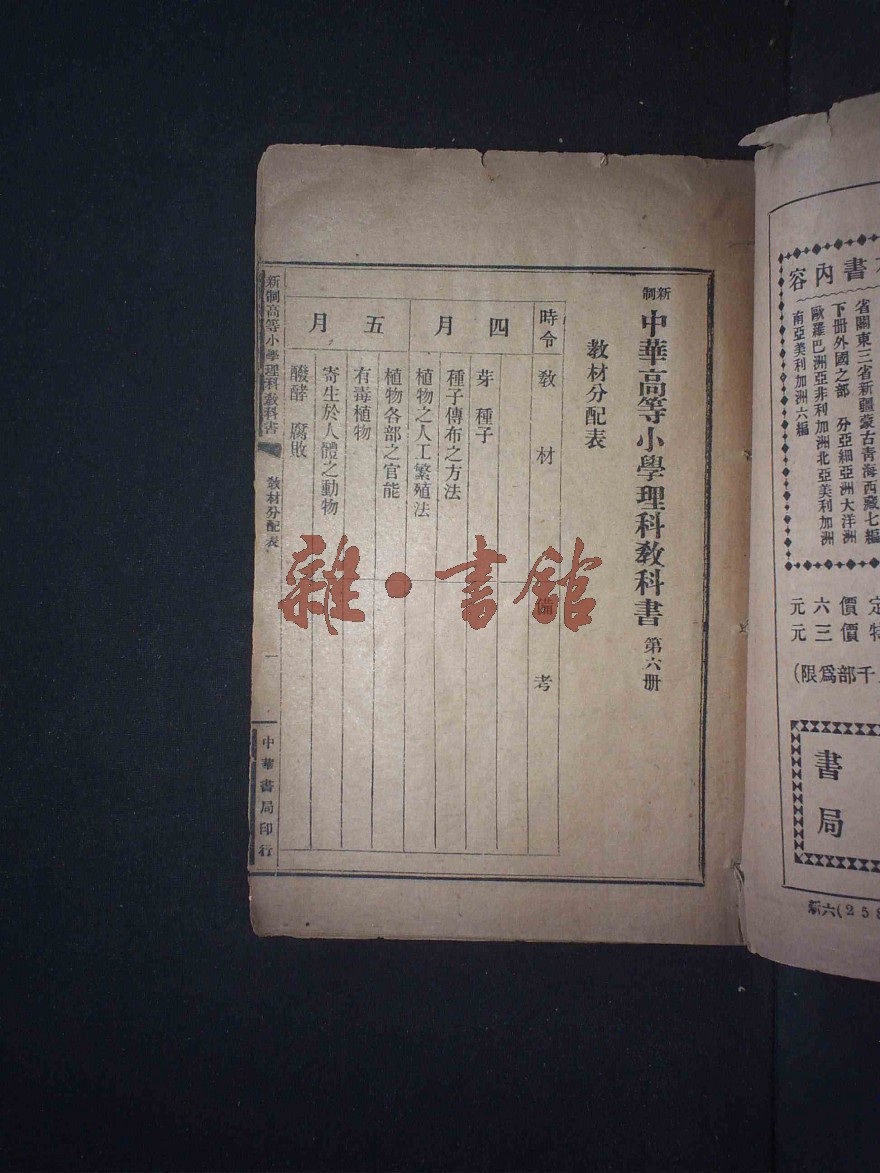 容內書
省關東三省新疆蒙古青海西藏七編
下册外國之部　分亞細亞洲大洋洲
歐羅巴洲亞非利加洲北亞美利加洲
南亞美利加洲六編
元六價定
元三價特
(限爲部千
書局
新六(258
新制
中華高等小學理科敎科書 第六册
敎材分配表
時令 敎材 備考
四月
芽　種子
種子傳布之方法
植物之人工繁殖法
五月
植物各部之官能
有毒植物
寄生於人體之動物
醱酵　腐敗
新制高等小學理科敎科書
敎材分配表
一
中華書局印行
雜·書館